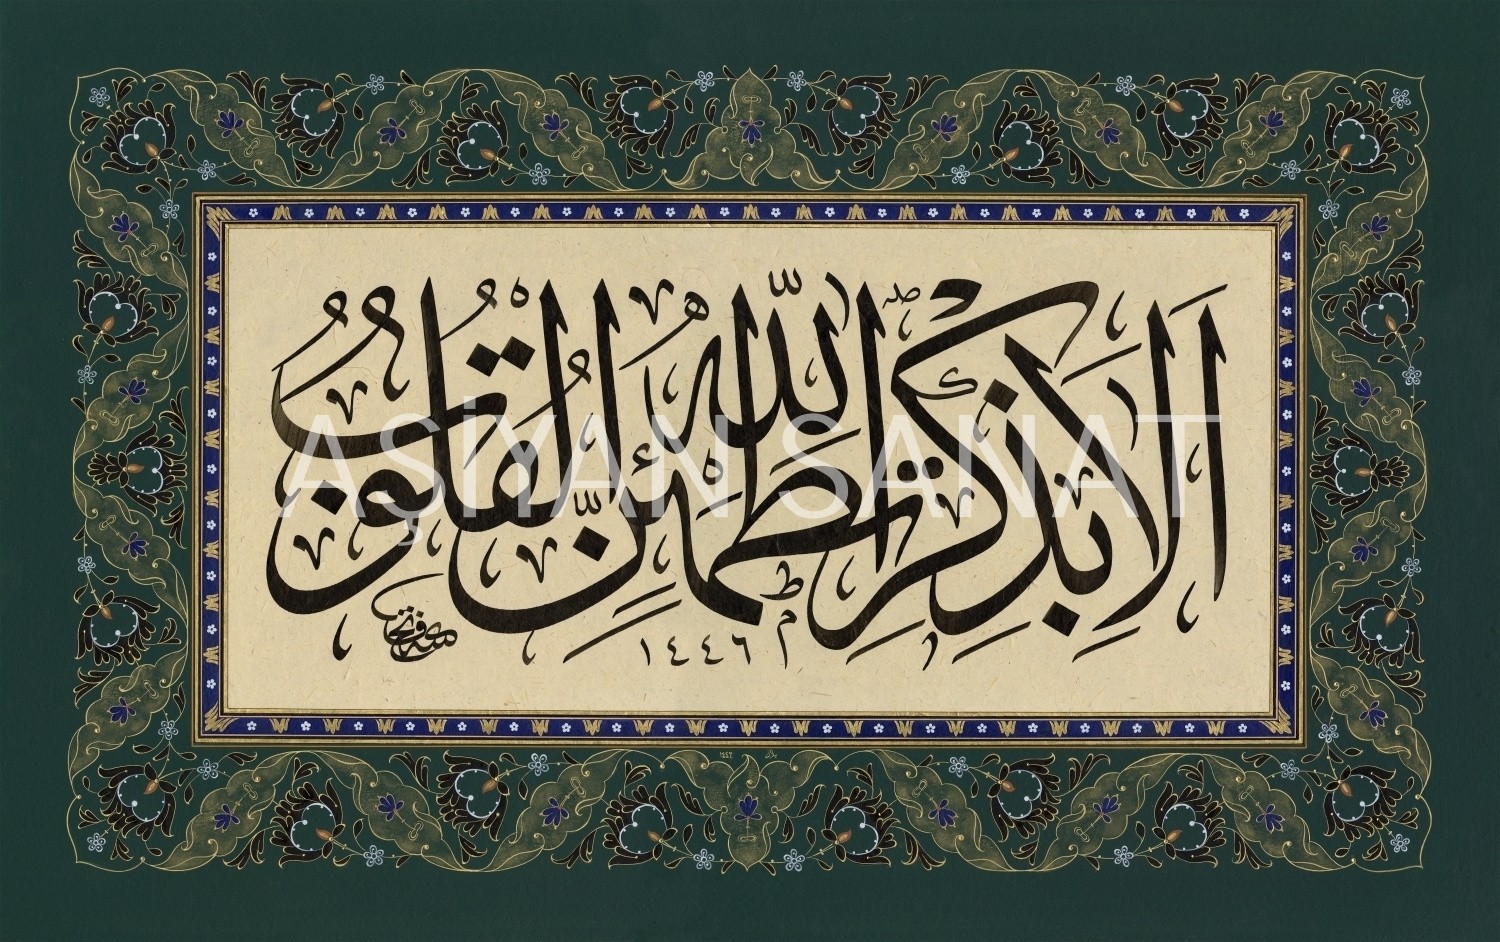 اَلَا بِذِكْرِ اللّٰهِ تَطْمَئِنُّ الْقُلُوبُ
١٤٤٦
AŞİYAN SANAT